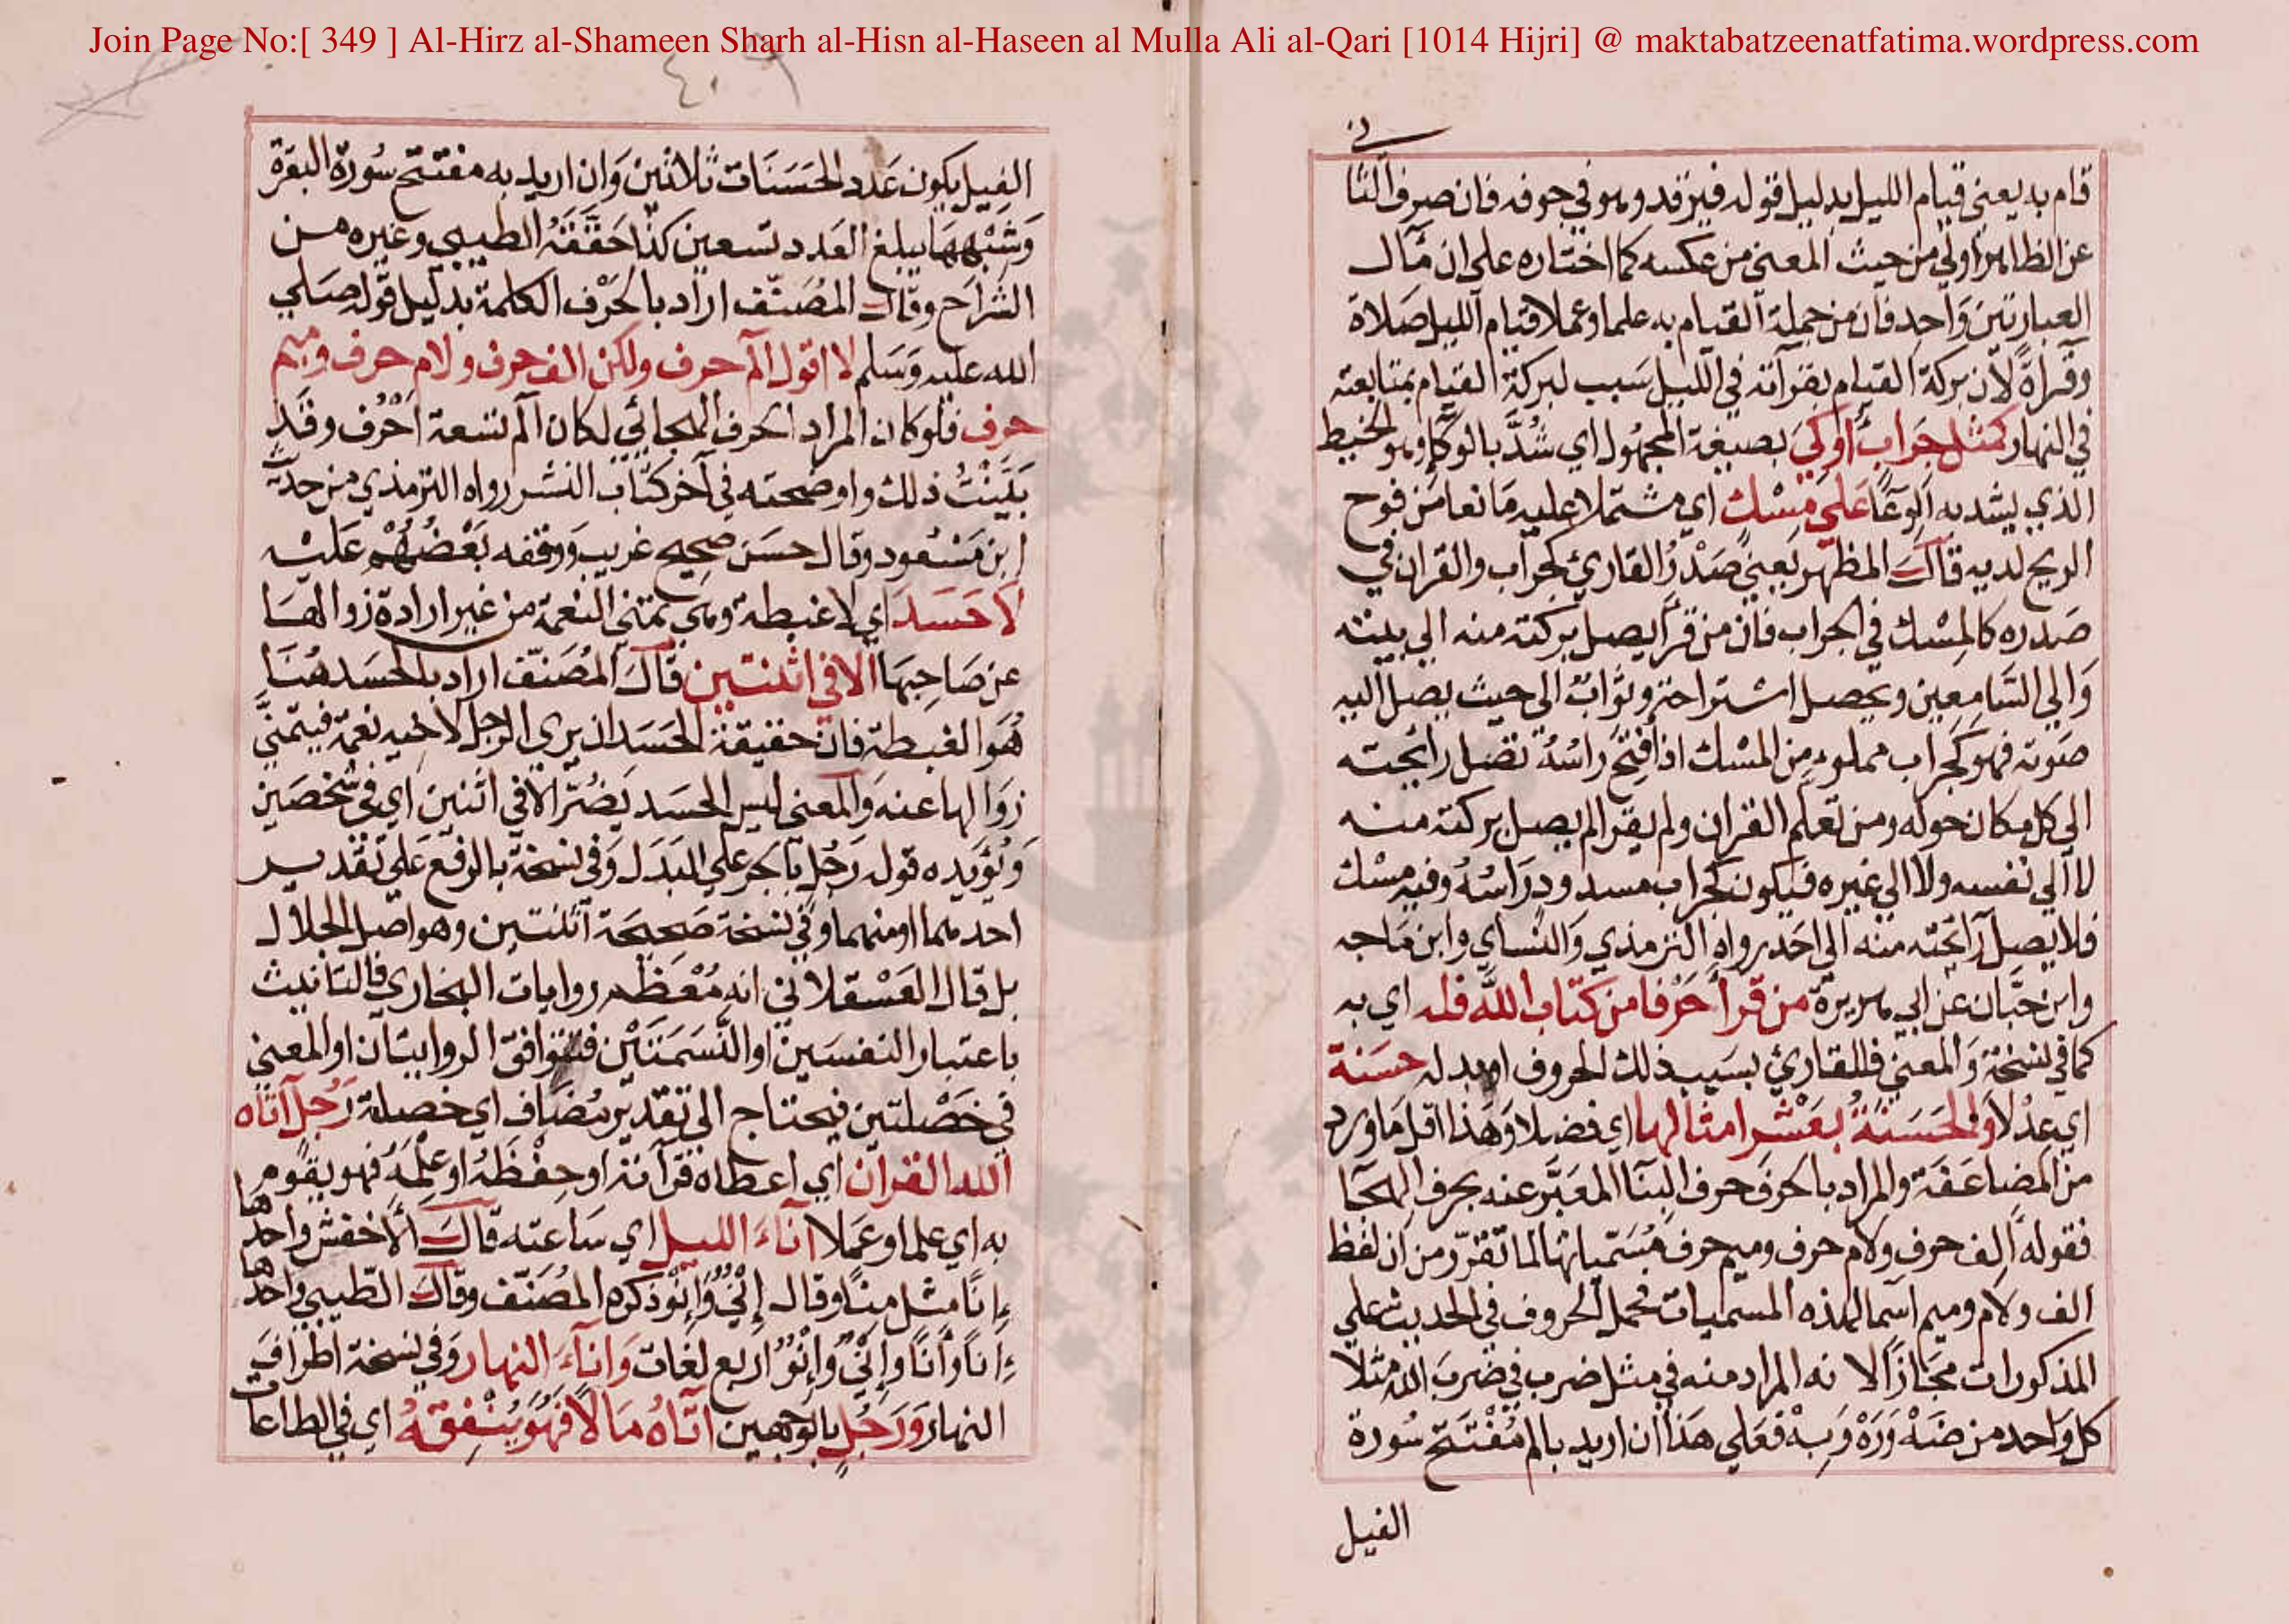 Join Page No:[ 349 ] Al-Hirz al-Shameen Sharh al-Hisn al-Haseen al Mulla Ali al-Qari [1014 Hijri] @ maktabatzeenatfatima.wordpress.com
قام به يعني قيام الليل بدليل قوله فيرقد وهو في جوفه فان صرف الثا
ني
عن الظاهر اولي من حيث المعني من عكسه كما اختاره علي ان مآل
العبارتين واحد فان من جملة القيام به علما وعملا قيام الليل صلاة
وقراة لان بركة القيام بقرآته في الليل سبب لبركة القيام بمتابعته
في النهار كمثل جراب أوكي بصيغة المجهول اي شد بالوكا وهو الخيط
الذي يشد به الوعا علي مسك اي مشتملا عليه مانعا من فوح
الريح لديه قال المظهر يعني صدر القارئ كجراب والقران في
صدره كالمسك في الجراب فان من قرأ يصل بركته منه الي بيته
والي السامعين ويحصل استراحة وثواب الي حيث يصل اليه
صوته فهو كجراب مملوء من المسك اذا فتح راسه تصل رائحته
الي كل مكان حوله ومن تعلم القران ولم يقرا لم يصل بركته منه
لا الي نفسه ولا الي غيره فيكون كجراب مسدود راسه وفيه مسك
فلا يصل رائحته منه الي احد رواه الترمذي والنساي وابن ماجه
وابن حبان عن ابي هريرة من قرأ حرفا من كتاب الله فله اي به
كما في نسخة والمعني فللقارئ بسبب ذلك الحروف او بدله حسنة
اي عدلا والحسنة بعشر امثالها اي فضلا وهذا اقل ما ورد
من المضاعفة والمراد بالحرف حرف البنا المعبر عنه بحرف الهجا
فقوله الف حرف ولام حرف وميم حرف مسمياتها لما تقرر من ان لفظ
الف ولام وميم اسما لهذه المسميات فحمل الحروف في الحديث علي
المذكورات مجازا لانه المراد منه في مثل ضرب في ضرب الله مثلا
كل واحد من ضه وره وبه فعلي هذا ان اريد بالم مفتتح سورة
الفيل
٤٠٩
الفيل يكون عدد الحسنات ثلاثين وان اريد به مفتتح سورة البقرة
وشبهها يبلغ العدد تسعين كذا حققه الطيبي وغيره من
الشراح وقال المصنف اراد بالحرف الكلمة بدليل قوله صلي
الله عليه وسلم لا اقول الم حرف ولكن الف حرف ولام حرف وميم
حرف فلو كان المراد الحرف الهجائي لكان الم تسعة احرف وقد
بينت ذلك واوضحته في آخر كتاب النشر رواه الترمذي من حديث
ابن مسعود وقال حسن صحيح غريب ووقفه بعضهم عليه
لا حسد اي لا غبطة وهي تمني النعمة من غير ارادة زوالها
عن صاحبها الا في اثنتين قال المصنف اراد بالحسد هنا
هو الغبطة فان حقيقة الحسد ان يري الرجل لاخيه نعمة فيتمني
زوالها عنه والمعني ليس الحسد يضر الا في اثنين اي في شخصين
ويؤيده قوله رجل بالجر علي البدل وفي نسخة بالرفع علي تقدير
احدهما او منهما وفي نسخة صحيحة اثنتين وهو اصل الجلال
بل قال العسقلاني انه معظم روايات البخاري فالتانيث
باعتبار النفسين او النسمتين فتتوافق الروايتان او المعني
في خصلتين فيحتاج الي تقدير مضاف اي خصلة رجل آتاه
الله القرآن اي اعطاه قرآته او حفظه او علمه فهو يقوم
به اي علما او عملا آناء الليل اي ساعته قال الاخفش واحدها
انا مثل منا وقال إني وإنو ذكره المصنف وقال الطيبي واحدها
انا وأنا وإني وإنو اربع لغات وآناء النهار وفي نسخة اطراف
النهار ورجل بالوجهين آتاه مالا فهو ينفقه اي في الطاعات